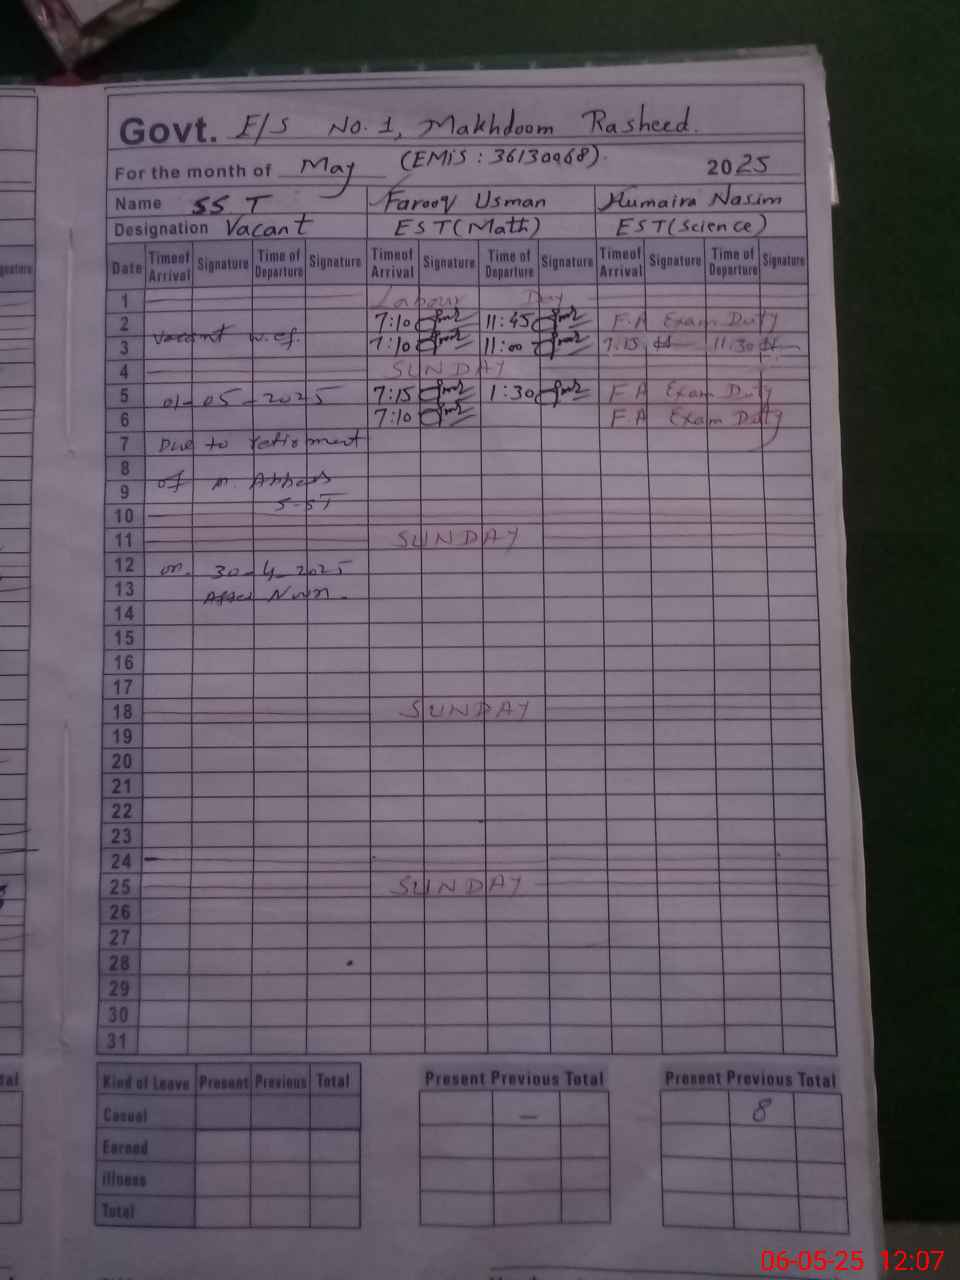 Govt. E/S No. 1, Makhdoom Rasheed.
For the month of May (EMIS : 36130968). 2025
Name SST Farooq Usman Humaira Nasim
Designation Vacant EST(Math) EST(Science)
Date Timeof Arrival Signature Time of Departure Signature Timeof Arrival Signature Time of Departure Signature Timeof Arrival Signature Time of Departure Signature
1 Labour Day
2 7:10 11:45 F.A Exam Duty
3 Vacant w.ef. 7:10 11:00 7.15 11.30
4 SUNDAY
5 01-05-2025 7:15 1:30 F A Exam Duty
6 7:10 F.A Exam Duty
7 Due to retirment
8
9 of M. Abbas
10 S-ST
11 SUNDAY
12 on. 30-4-2025
13 After Noon.
14
15
16
17
18 SUNDAY
19
20
21
22
23
24
25 SUNDAY
26
27
28
29
30
31
Kind of Leave Present Previous Total Present Previous Total Present Previous Total
Casual – 8
Earned
illness
Total
06-05-25 12:07